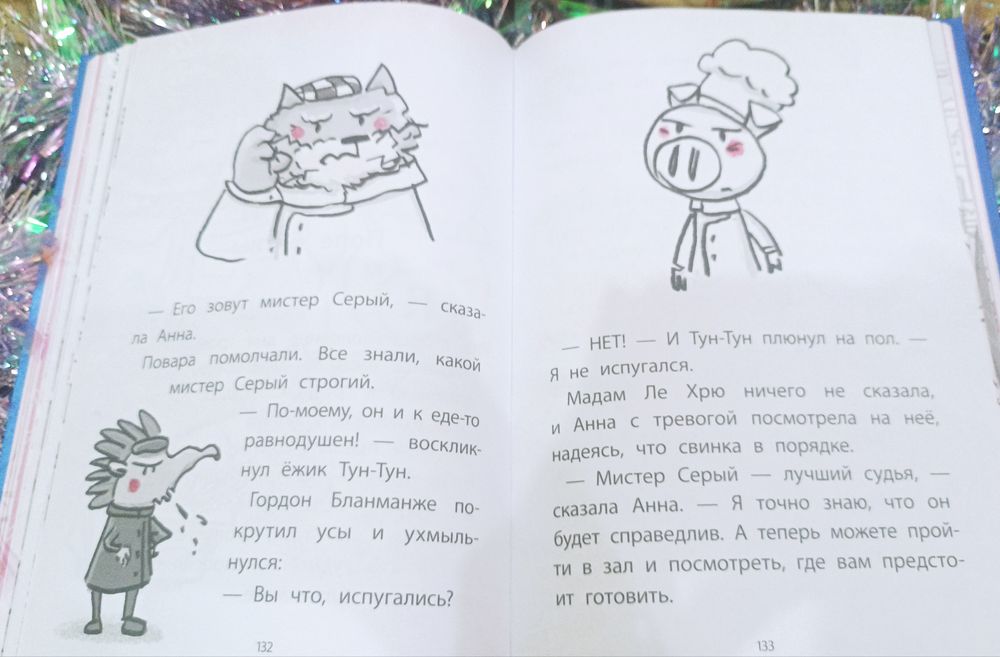 — Его зовут мистер Серый, — сказа-
ла Анна.
Повара помолчали. Все знали, какой
мистер Серый строгий.
— По-моему, он и к еде-то
равнодушен! — восклик-
нул ёжик Тун-Тун.
Гордон Бланманже по-
крутил усы и ухмыль-
нулся:
— Вы что, испугались?
132
— НЕТ! — И Тун-Тун плюнул на пол. —
Я не испугался.
Мадам Ле Хрю ничего не сказала,
и Анна с тревогой посмотрела на неё,
надеясь, что свинка в порядке.
— Мистер Серый — лучший судья, —
сказала Анна. — Я точно знаю, что он
будет справедлив. А теперь можете прой-
ти в зал и посмотреть, где вам предсто-
ит готовить.
133